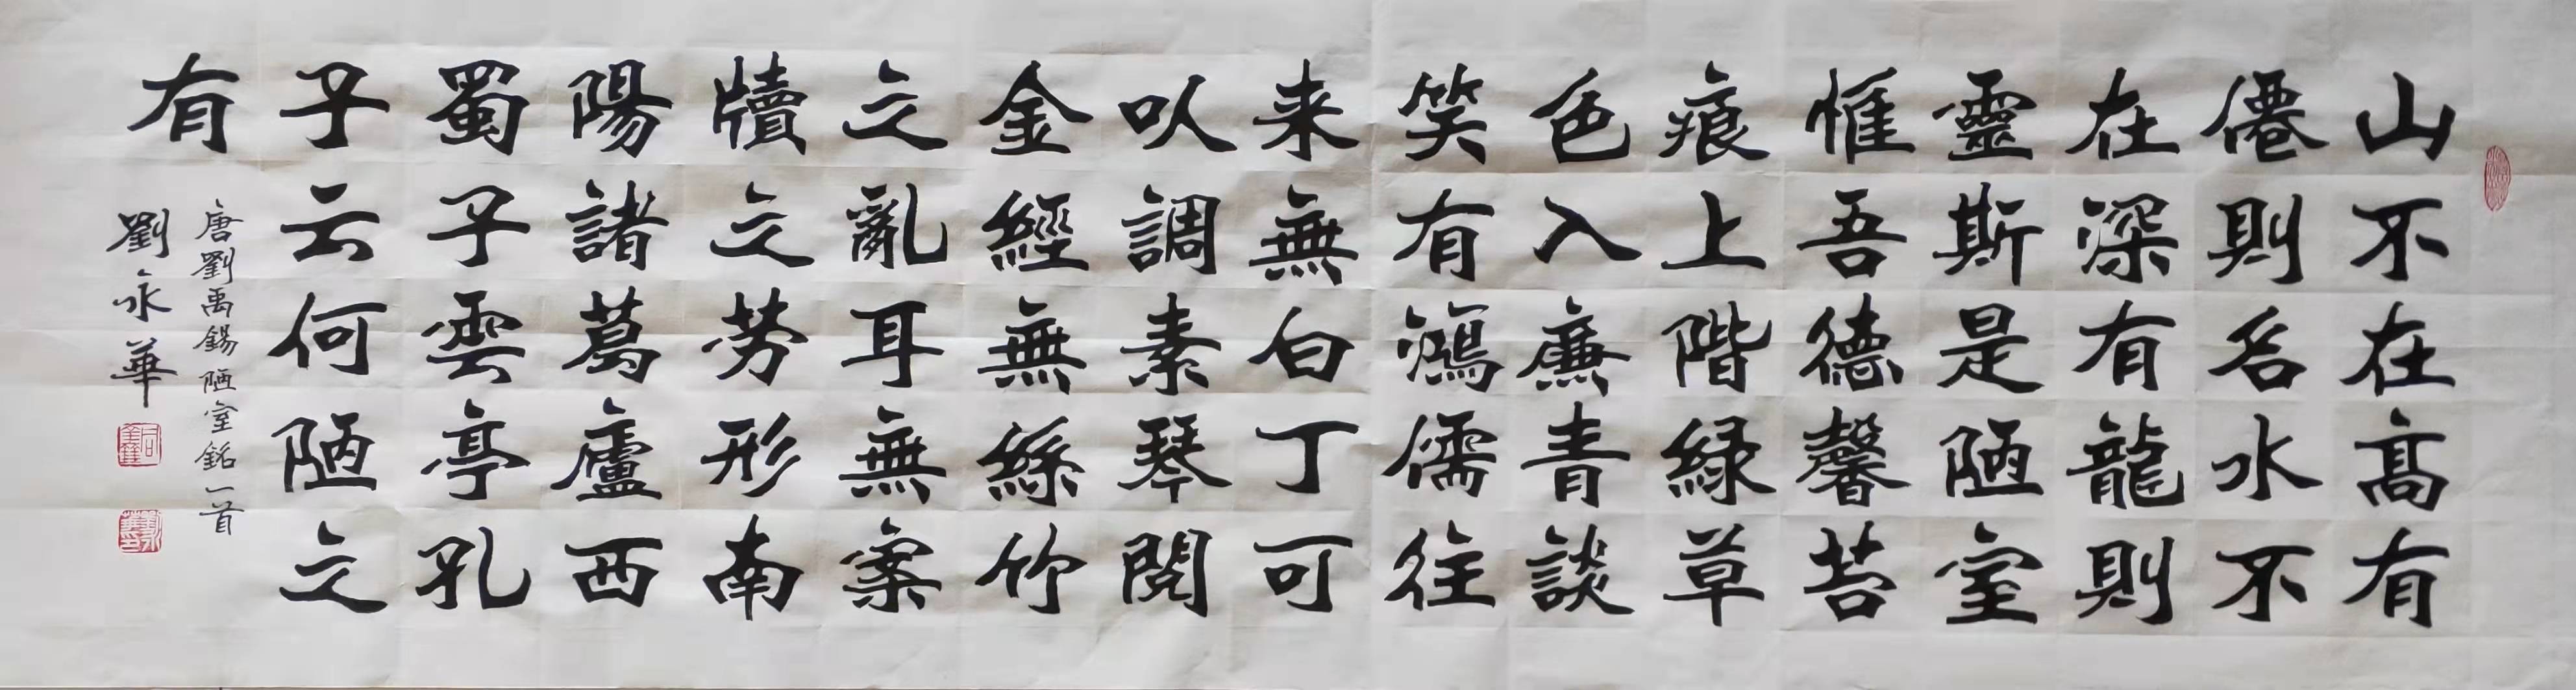 山不在髙有
僊則名水不
在深有龍則
靈斯是陋室
惟吾德馨苔
痕上階緑草
色入廉青談
笑有鴻儒往
来無白丁可
以調素琴閱
金經無絲竹
之亂耳無案
牘之劳形南
陽諸葛廬西
蜀子雲亭孔
子云何陋之
有
唐劉禹錫陋室銘一首
劉永華